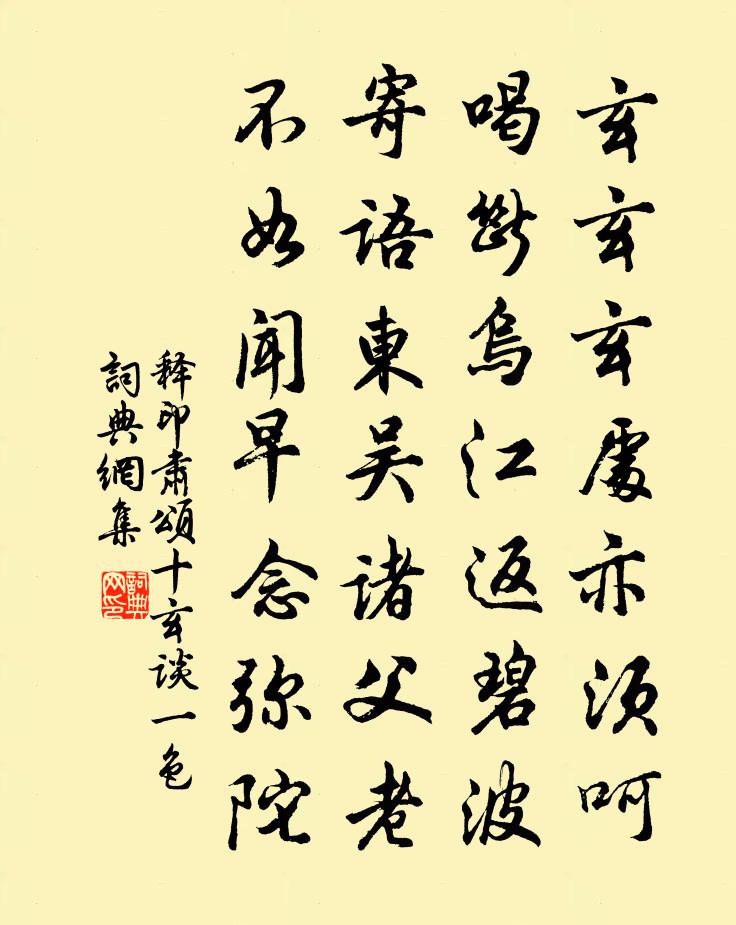 玄玄玄處亦須呵
喝斷烏江返碧波
寄語東吴諸父老
不如聞早念弥陀
释印肅頌十玄談一色
詞典網集
詞典网印